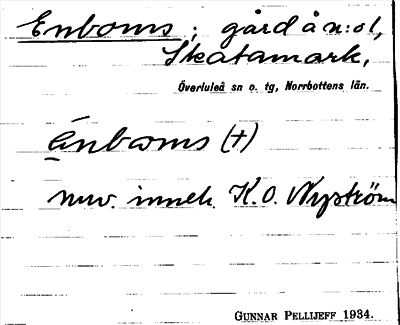 Enboms; gård å n:o 1,
Skatamark,
Överluleå sn o. tg, Norrbottens län.
énboms (+)
nuv. inneh. K. O. Nyström
GUNNAR PELLIJEFF 1934.